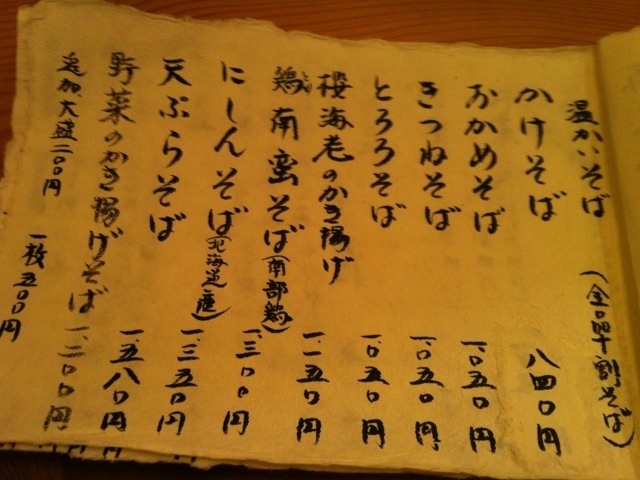 温かいそば (全品十割そば)
かけそば 八四〇円
おかめそば 一、〇五〇円
きつねそば 一、〇五〇円
とろろそば 一、〇五〇円
桜海老のかき揚げ 一、一五〇円
鶏南蛮そば(南部鶏) 一、三〇〇円
にしんそば(北海道産) 一、三五〇円
天ぷらそば 一、五八〇円
野菜のかき揚げそば 一、二〇〇円
追加、大盛二〇〇円 一枚五〇〇円